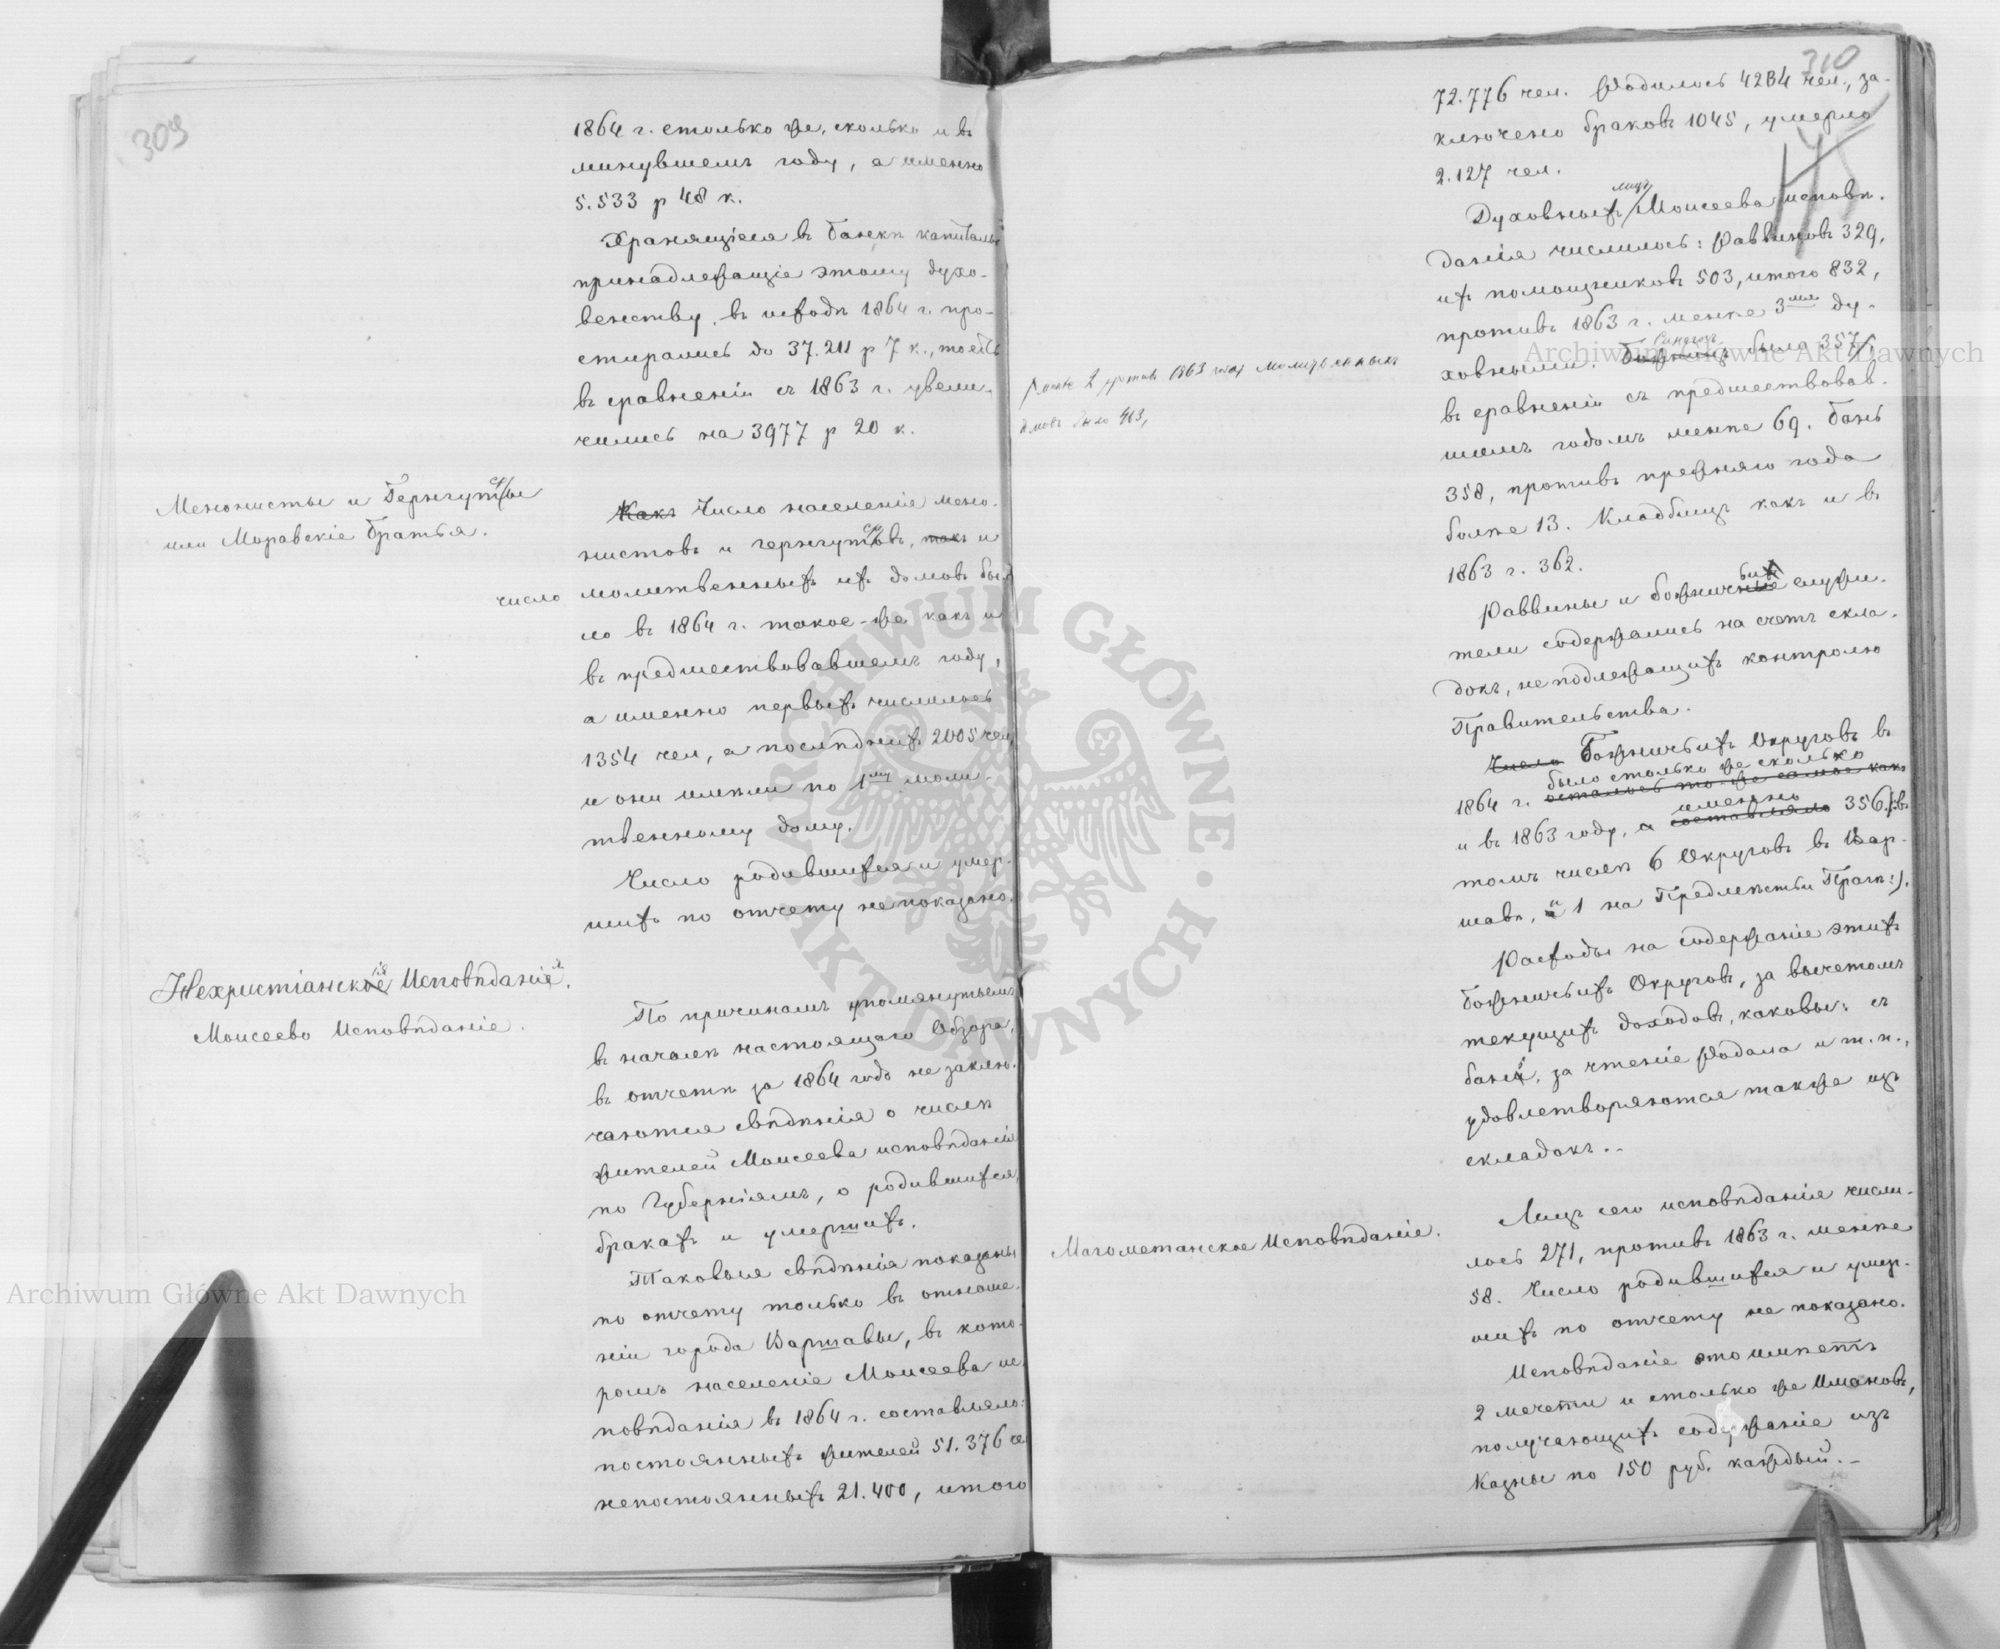 309
1864 г. столько же, сколько и въ
минувшемъ году, а именно
5.533 р 48 к.
Хранящіеся въ Банкѣ капиталы
принадлежащіе этому духо-
венству, въ исходѣ 1864 г. про-
стирались до 37.211 р 7 к., то есть
въ сравненіи съ 1863 г. увели-
чились на 3977 р 20 к.
Менонисты и Гернгутеры
или Моравскіе братья.
Какъ Число населенія мено-
нистовъ и гернгутеровъ, такъ и
число молитвенныхъ ихъ домовъ бы-
ло въ 1864 г. такое-же какъ и
въ предшествовавшемъ году,
а именно первыхъ числилось
1354 чел, а послѣднихъ 2005 чел
и они имѣли по 1му моли-
твенному дому.
Число родившихся и умер-
шихъ по отчету не показано.
Нехристіанскія Исповѣданія.
Моисеево Исповѣданіе.
По причинамъ упомянутымъ
въ началѣ настоящаго Обзора,
въ отчетѣ за 1864 годъ не заклю-
чаются свѣдѣнія о числѣ
жителей Моисеева исповѣданія
по Губерніямъ, о родившихся,
бракахъ и умершихъ.
Таковыя свѣдѣнія показаны
по отчету только въ отноше-
ніи города Варшавы, въ кото-
ромъ населеніе Моисеева ис-
повѣданія въ 1864 г. составляло:
постоянныхъ жителей 51.376 чел
непостоянныхъ 21.400, итого
310
72.776 чел. Родилось 4234 чел., за-
ключено браковъ 1045, умерло
2.127 чел.
лицъ
Духовныхъ Моисеева исповѣ-
данія числилось: Раввиновъ 329,
ихъ помощниковъ 503, итого 832,
противъ 1863 г. менѣе 3мя ду-
ховными. Божницъ было 357,
менѣе 2 противъ 1863 года молитвенныхъ
домовъ было 463,
въ сравненіи съ предшествовав-
шимъ годомъ менѣе 69. Бань
358, противъ прежняго года
болѣе 13. Кладбищъ какъ и въ
1863 г. 362.
Раввины и божничные служи-
тели содержались на счетъ скла-
докъ, неподлежащихъ контролю
Правительства.
Число Божничьихъ Округовъ въ
было столько же сколько
1864 г. осталось то же самое какъ
именно
и въ 1863 году, а составляло 356 (:въ
томъ числѣ 6 Округовъ въ Вар-
шавѣ, и 1 на Предмѣстьи Прагѣ:).
Расходы на содержаніе этихъ
божничьихъ Округовъ, за вычетомъ
текущихъ доходовъ, каковы: съ
бань, за чтеніе Родала и т. п.,
удовлетворяются также изъ
складокъ.
Магометанское Исповѣданіе.
Лицъ сего исповѣданія числи-
лось 271, противъ 1863 г. менѣе
58. Число родившихся и умер-
шихъ по отчету не показано.
Исповѣданіе это имѣетъ
2 мечети и столько же Имановъ,
получающихъ содержаніе изъ
Казны по 150 руб. каждый.
ARCHIWUM GŁÓWNE AKT DAWNYCH
Archiwum Główne Akt Dawnych
Archiwum Główne Akt Dawnych